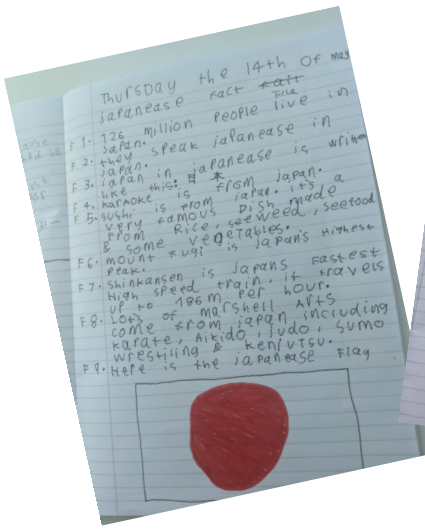 Thursday the 14th Of may
japanease Fact File
F 1. 126 million people live in
Japan.
F 2. they speak jalanease in
Japan.
F 3. japan in japanease is written
like this: 日本
F 4. karaoke is from japan.
F 5. Sushi is from japan. it's a
very famous Dish made
From Rice, seeweed, seefood
& some vegetables.
F 6. mount Fugi is japan's Highest
Peak.
F 7. Shinkansen is japans Fastest
High speed train, it travels
up to 186m per hour.
F 8. Lots of marshell Arts
come from japan including
karate, Aikido, judo, sumo
wrestiling & kenjutsu.
F 9. Here is the japanease Flag